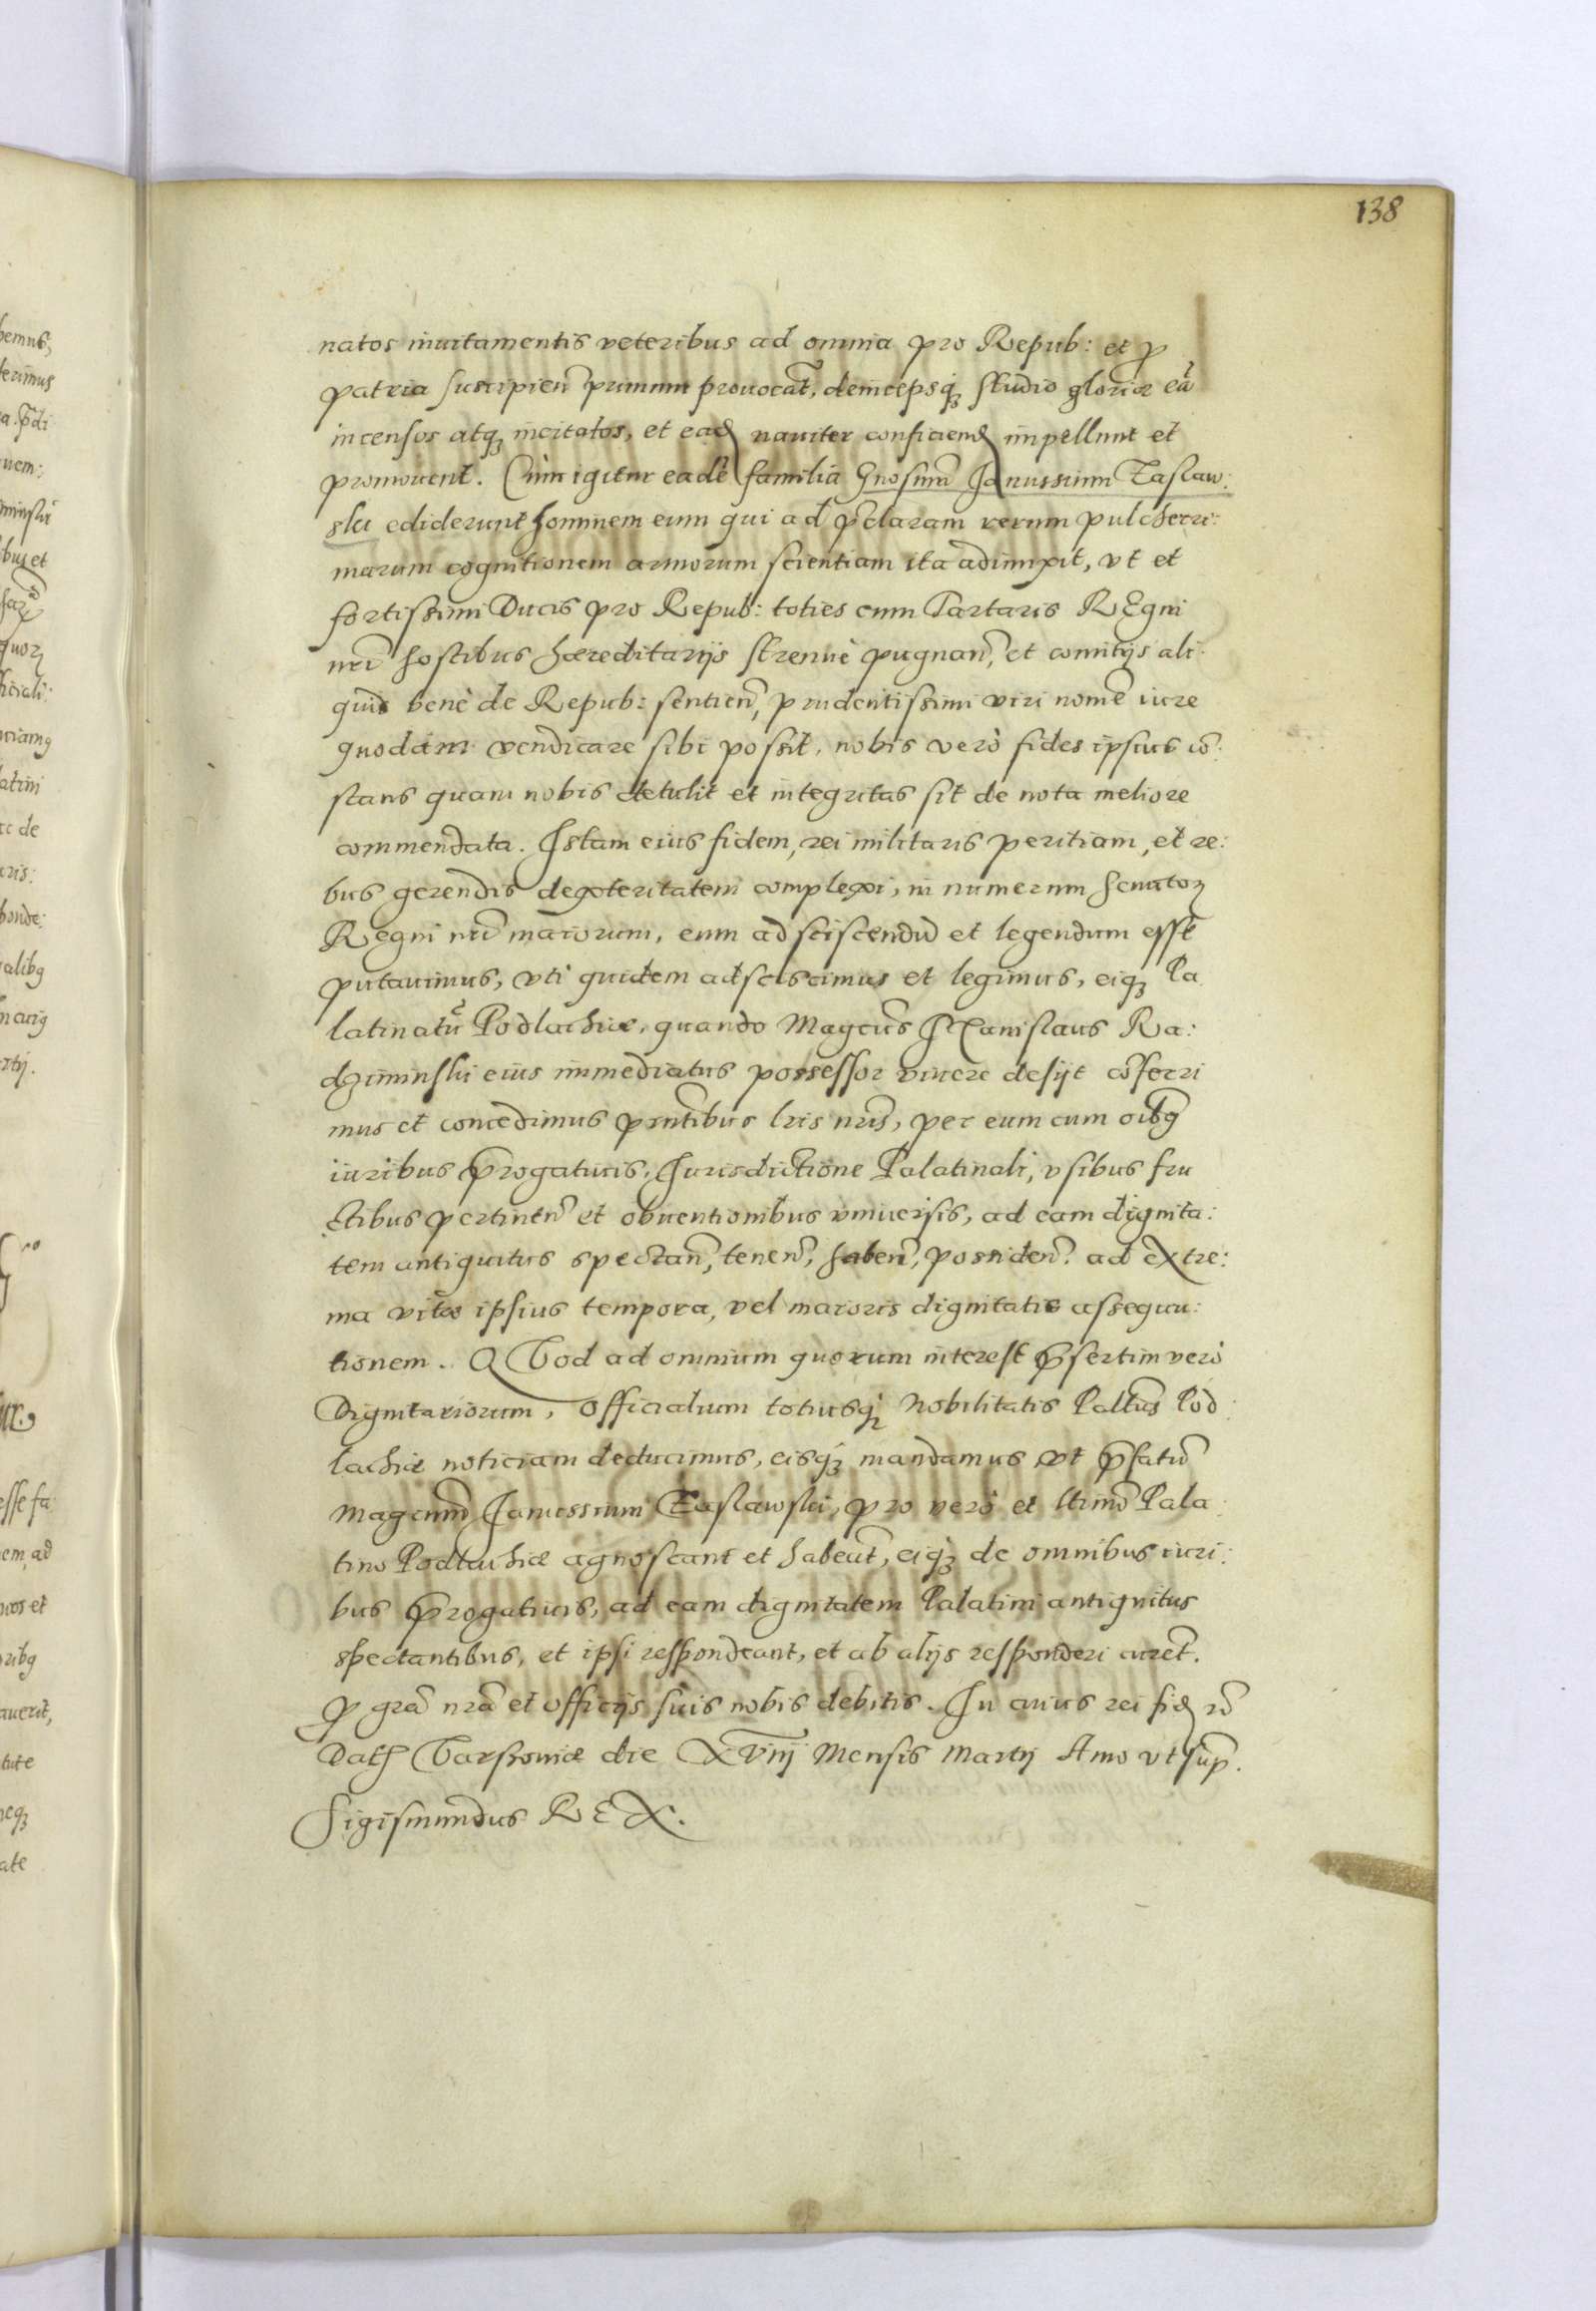 138
natos inuitamentis veteribus ad omnia pro Repub: et p
patria suscipien primum prouocat, deincepsq; studio gloriæ eũ
incensos atq; incitatos, et ead nauiter conficiend impellunt et
promouent. Cum igitur eadē familia Gnosum Janussium Zaslaw:
ski ediderunt hominem eum qui ad pclaram rerum pulcherri:
marum cognitionem armorum scientiam ita adiunxit, vt et
fortissimi Ducis pro Repub: toties cum Tartaris REgni
nri hostibus hæreditarijs strenuè pugnan, et comitijs ali
quid benè de Repub: sentien, prudentissimi viri nomē iure
quodam vendicare sibi possit, nobis verò fides ipsius cō:
stans quam nobis detulit et integritas sit de nota meliore
commendata. Istam eius fidem, rei militaris peritiam, et re:
bus gerendis dexteritatem complexi, in numerum Senator
Regni nri maiorum, eum adsciscendū et legendum esse
putauimus, vti quidem adsciscimus et legimus, eiq; Pa
latinatũ Podlachiæ, quando Magcus Stanislaus Ra:
dziminski eius immediatus possessor viuere desijt cōferri
mus et concedimus pntibus lris nris, per eum cum oibg
iuribus progatiuis, Jurisdictione Palatinali, vsibus fru
ctibus pertinen et obuentionibus vniuersis, ad eam dignita:
tem antiquitus spectan, tenen, haben, possiden. ad extre:
ma vitæ ipsius tempora, vel maioris dignitatis assequu:
tionem. QVod ad omnium quorum interest psertim verò
Dignitariorum, Officialium totiusq; Nobilitatis Paltus Pod:
lachiæ noticiam deducimus, eisq; mandamus vt pfatū
Magcum Janussium Zaslawski, pro vero et ltimo Pala
tino Podlachiæ agnoscant et habeat, eiq; de omnibus iuri:
bus progatiuis, ad eam dignitatem Palatini antiquitus
spectantibus, et ipsi respondeant, et ab alijs responderi curet.
p gra nra et officijs suis nobis debitis. In cuius rei fid
Dat Varsouiæ die XVIIj Mensis Martij Anno vt sup.
Sigismundus REX.